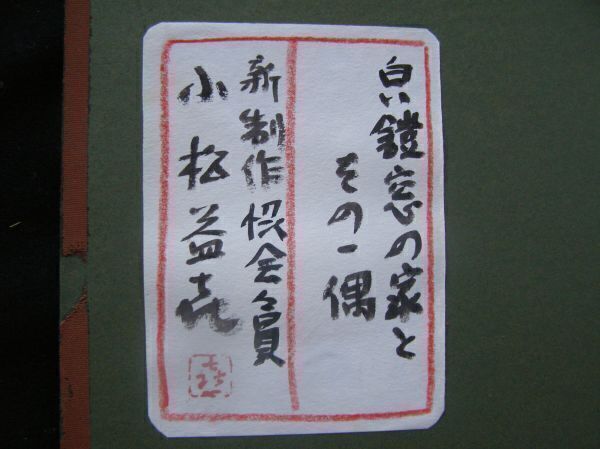 白い鎧窓の家と
その一偶
新制作協会会員
小松益喜